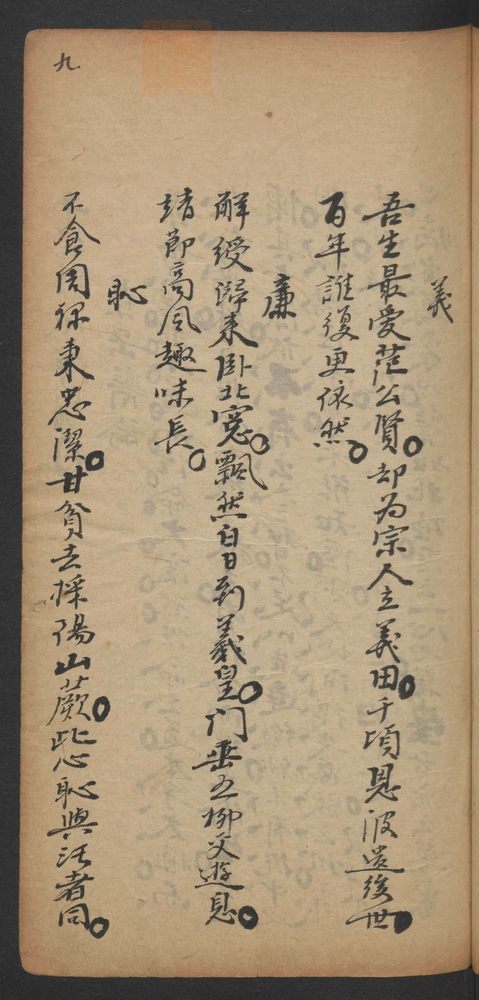 義
吾生最愛范公賢。却为宗人立義田。千頃恩波遺後世。
百年誰復更依然。
廉
解綬歸来卧北窓。飄然白日到羲皇。门垂五柳交遊息。
靖節高风趣味長。
恥
不食周禄秉忠潔。甘貧去採陽山蕨。此心恥與汙者同。
九